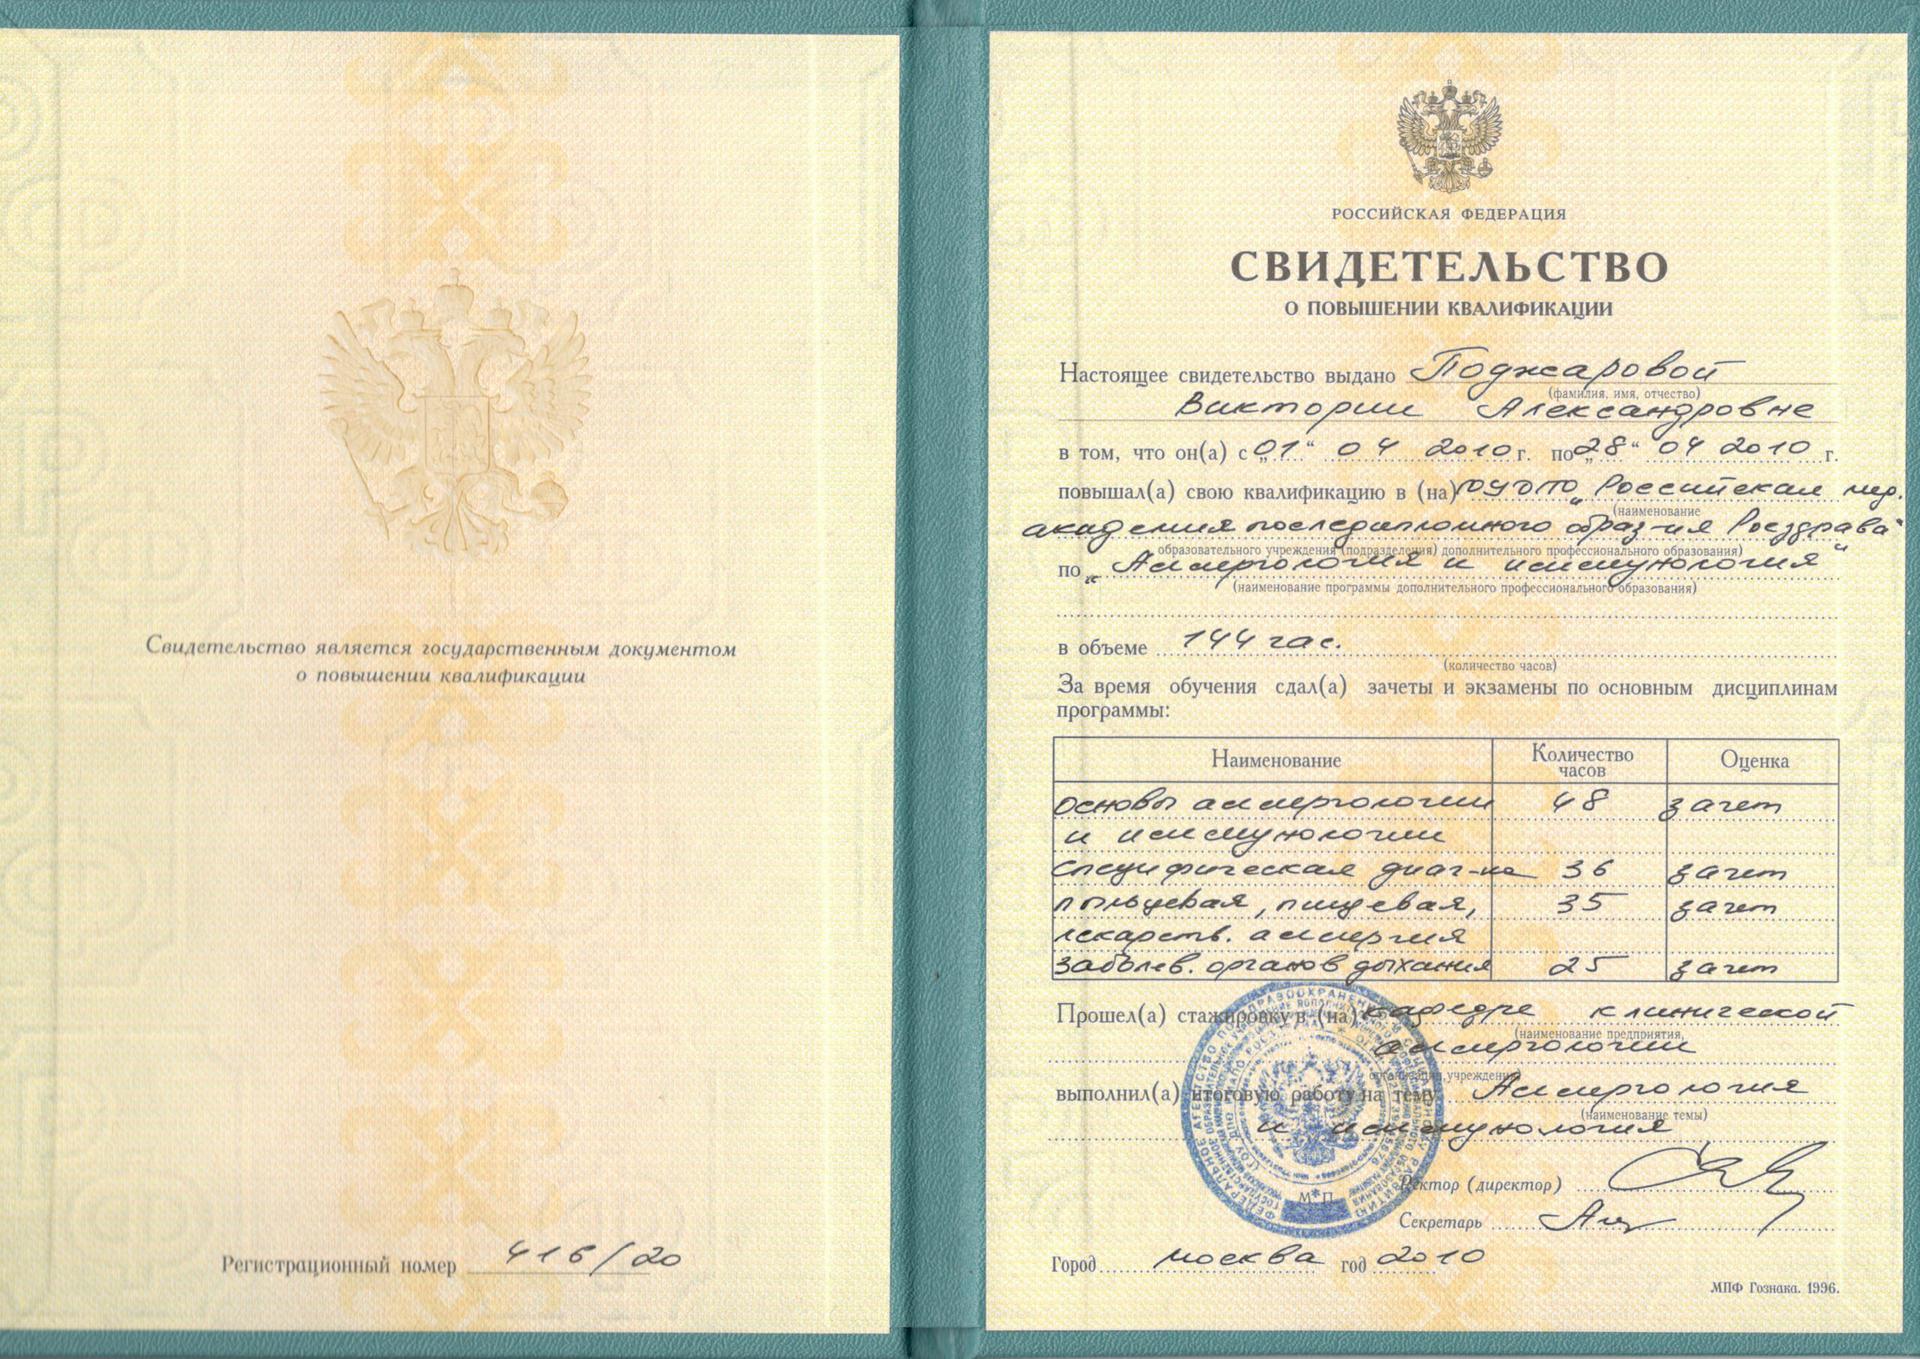 Свидетельство является государственным документом
о повышении квалификации
Регистрационный номер 416/20
РОССИЙСКАЯ ФЕДЕРАЦИЯ
СВИДЕТЕЛЬСТВО
О ПОВЫШЕНИИ КВАЛИФИКАЦИИ
Настоящее свидетельство выдано Поджаровой
(фамилия, имя, отчество)
Виктории Александровне
в том, что он(а) с „01“ 04 2010 г. по „28“ 04 2010 г.
повышал(а) свою квалификацию в (на) ГОУ ДПО „Российская мед.
(наименование
академия последипломного образ-ия Росздрава“
образовательного учреждения (подразделения) дополнительного профессионального образования)
по „Аллергология и иммунология“
(наименование программы дополнительного профессионального образования)
в объеме 144 час.
(количество часов)
За время обучения сдал(а) зачеты и экзамены по основным дисциплинам
программы:
Наименование Количество часов Оценка
Основы аллергологии 48 зачет
и иммунологии
Специфическая диаг-ка 36 зачет
Пыльцевая, пищевая, 35 зачет
лекарств. аллергия
Заболев. органов дыхания 25 зачет
Прошел(а) стажировку в (на) кафедре клинической
(наименование предприятия,
аллергологии
организации, учреждения)
выполнил(а) итоговую работу на тему Аллергология
(наименование темы)
и иммунология
М П
Ректор (директор)
Секретарь
Город Москва год 2010
МПФ Гознака. 1996.